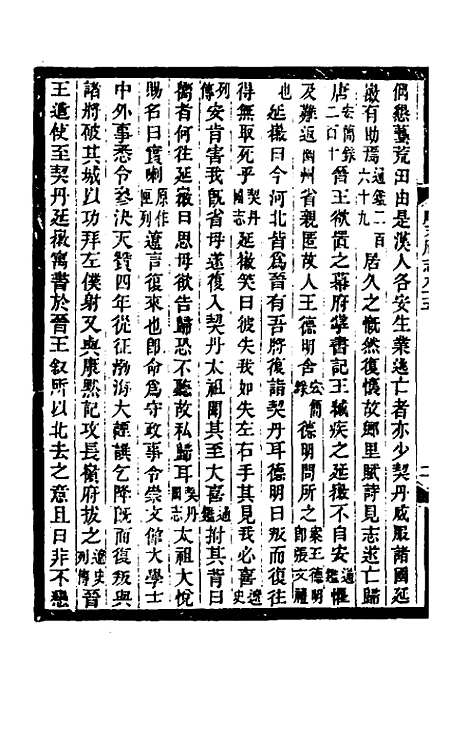 偶墾藝荒田由是漢人各安生業逃亡者亦少契丹威服諸國延
徽有助焉通鑑二百六十九居久之慨然復懷故鄉里賦詩見志遂亡歸
唐宏簡錄二百十晉王欲置之幕府掌書記王緘疾之延徽不自安通鑑懼
及難返幽州省親匿故人王德明舍宏簡錄德明問所之案王德明即張文禮
也延徽曰今河北皆為晉有吾將復詣契丹耳德明曰叛而復往
得無取死乎契丹國志延徽笑曰彼失我如失左右手其見我必喜遼史
列傳安肯害我既省母遂復入契丹太祖聞其至大喜通鑑拊其背曰
嚮者何往延徽曰思母欲告歸恐不聽故私歸耳契丹國志太祖大悅
賜名曰實喇原作匣列遼言復來也即命為守政事令崇文館大學士
中外事悉令參決天贊四年從征渤海大諲譔乞降既而復叛與
諸將破其城以功拜左僕射又與康默記攻長嶺府拔之遼史列傳晉
王遣使至契丹延徽寓書於晉王叙所以北去之意且曰非不戀